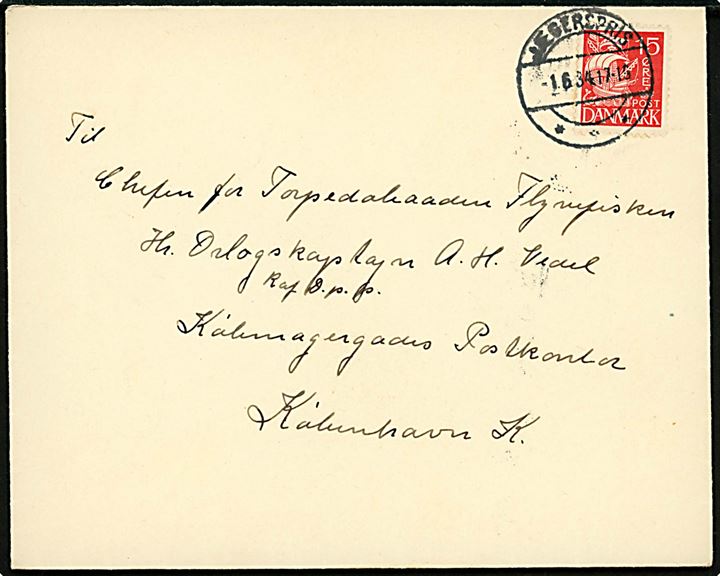 JÆGERSPRIS
-1.6.34.17-15
15
ØRE
POST
DANMARK
Til
Chefen for Torpedobaaden Flyvefisken
Hr. Orlogskaptajn A. H. Vedel
R af D. p. p.
Købmagergades Postkontor
København K.